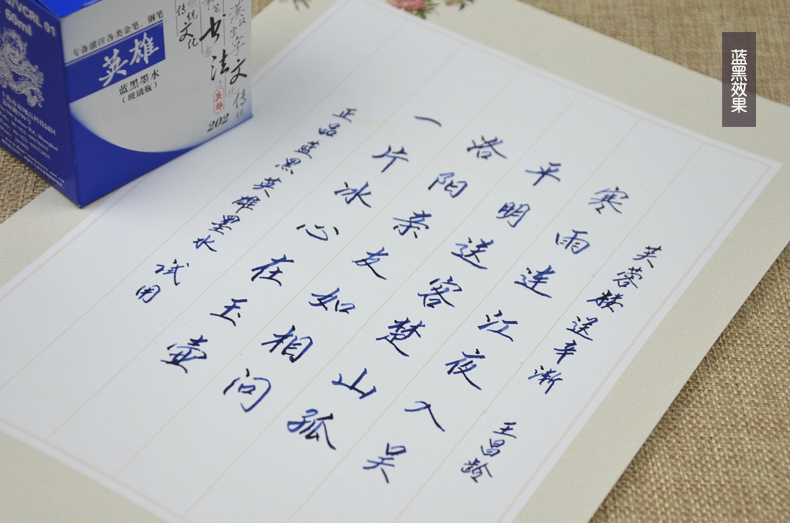 蓝黑效果
芙蓉楼送辛渐
王昌龄
寒雨连江夜入吴
平明送客楚山孤
洛阳亲友如相问
一片冰心在玉壶
正品蓝黑英雄墨水
试用
60ml
专备灌注各类金笔、钢笔
英雄
蓝黑墨水
(玻璃瓶)
传统文化
书法
英雄
202